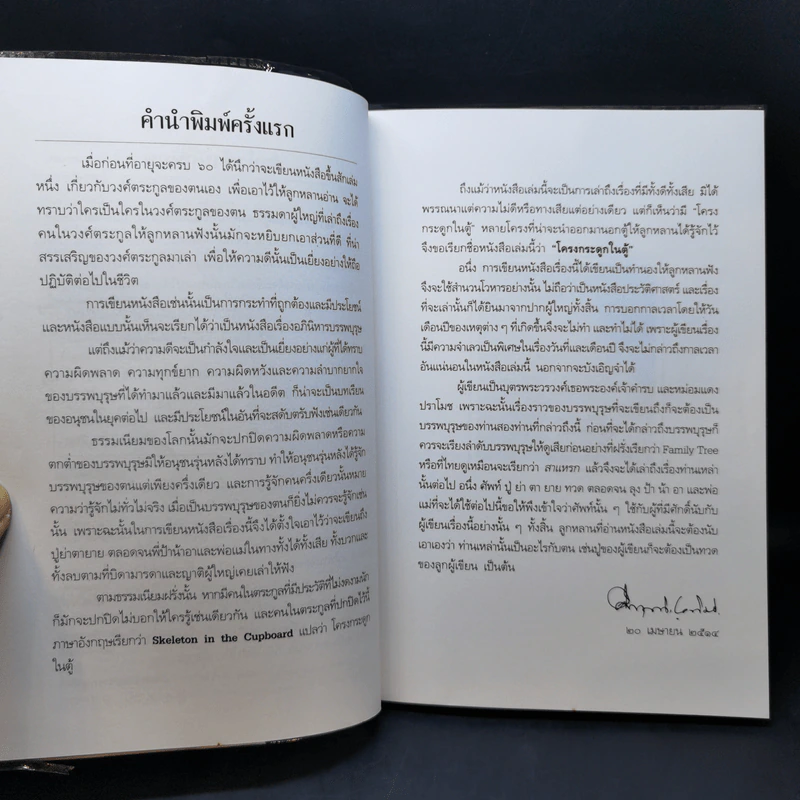 คำนำพิมพ์ครั้งแรก
เมื่อก่อนที่อายุจะครบ ๖๐ ได้นึกว่าจะเขียนหนังสือขึ้นสักเล่ม
หนึ่ง เกี่ยวกับวงศ์ตระกูลของตนเอง เพื่อเอาไว้ให้ลูกหลานอ่าน จะได้
ทราบว่าใครเป็นใครในวงศ์ตระกูลของตน ธรรมดาผู้ใหญ่ที่เล่าถึงเรื่อง
คนในวงศ์ตระกูลให้ลูกหลานฟังนั้นมักจะหยิบยกเอาส่วนที่ดี ที่น่า
สรรเสริญของวงศ์ตระกูลมาเล่า เพื่อให้ความดีนั้นเป็นเยี่ยงอย่างให้ถือ
ปฏิบัติต่อไปในชีวิต
การเขียนหนังสือเช่นนั้นเป็นการกระทำที่ถูกต้องและมีประโยชน์
และหนังสือแบบนั้นเห็นจะเรียกได้ว่าเป็นหนังสือเรื่องอภินิหารบรรพบุรุษ
แต่ถึงแม้ว่าความดีจะเป็นกำลังใจและเป็นเยี่ยงอย่างแก่ผู้ที่ได้ทราบ
ความผิดพลาด ความทุกข์ยาก ความผิดหวังและความลำบากยากใจ
ของบรรพบุรุษที่ได้ทำมาแล้วและมีมาแล้วในอดีต ก็น่าจะเป็นบทเรียน
ของอนุชนในยุคต่อไป และมีประโยชน์ในอันที่จะสดับตรับฟังเช่นเดียวกัน
ธรรมเนียมของโลกนั้นมักจะปกปิดความผิดพลาดหรือความ
ตกต่ำของบรรพบุรุษมิให้อนุชนรุ่นหลังได้ทราบ ทำให้อนุชนรุ่นหลังได้รู้จัก
บรรพบุรุษของตนแต่เพียงครึ่งเดียว และการรู้จักคนครึ่งเดียวนั้นหมาย
ความว่ารู้จักไม่ทั่วไม่จริง เมื่อเป็นบรรพบุรุษของตนก็ยิ่งไม่ควรจะรู้จักเช่น
นั้น เพราะฉะนั้นในการเขียนหนังสือเรื่องนี้จึงได้ตั้งใจเอาไว้ว่าจะเขียนถึง
ปู่ย่าตายาย ตลอดจนพี่ป้าน้าอาและพ่อแม่ในทางทั้งได้ทั้งเสีย ทั้งบวกและ
ทั้งลบตามที่บิดามารดาและญาติผู้ใหญ่เคยเล่าให้ฟัง
ตามธรรมเนียมฝรั่งนั้น หากมีคนในตระกูลที่มีประวัติที่ไม่งดงามนัก
ก็มักจะปกปิดไม่บอกให้ใครรู้เช่นเดียวกัน และคนในตระกูลที่ปกปิดไว้นี้
ภาษาอังกฤษเรียกว่า Skeleton in the Cupboard แปลว่า โครงกระดูก
ในตู้
ถึงแม้ว่าหนังสือเล่มนี้จะเป็นการเล่าถึงเรื่องที่มีทั้งดีทั้งเสีย มิได้
พรรณนาแต่ความไม่ดีหรือทางเสียแต่อย่างเดียว แต่ก็เห็นว่ามี “โครง
กระดูกในตู้” หลายโครงที่น่าจะนำออกมานอกตู้ให้ลูกหลานได้รู้จักไว้
จึงขอเรียกชื่อหนังสือเล่มนี้ว่า “โครงกระดูกในตู้”
อนึ่ง การเขียนหนังสือเรื่องนี้ได้เขียนเป็นทำนองให้ลูกหลานฟัง
จึงจะใช้สำนวนโวหารอย่างนั้น ไม่ถือว่าเป็นหนังสือประวัติศาสตร์ และเรื่อง
ที่จะเล่านั้นก็ได้ยินมาจากปากผู้ใหญ่ทั้งสิ้น การบอกกาลเวลาโดยให้วัน
เดือนปีของเหตุต่าง ๆ ที่เกิดขึ้นจึงจะไม่ทำ และทำไม่ได้ เพราะผู้เขียนเรื่อง
นี้มีความจำเลวเป็นพิเศษในเรื่องวันที่และเดือนปี จึงจะไม่กล่าวถึงกาลเวลา
อันแน่นอนในหนังสือเล่มนี้ นอกจากจะบังเอิญจำได้
ผู้เขียนเป็นบุตรพระวรวงศ์เธอพระองค์เจ้าคำรบ และหม่อมแดง
ปราโมช เพราะฉะนั้นเรื่องราวของบรรพบุรุษที่จะเขียนถึงก็จะต้องเป็น
บรรพบุรุษของท่านสองท่านที่กล่าวถึงนี้ ก่อนที่จะได้กล่าวถึงบรรพบุรุษก็
ควรจะเรียงลำดับบรรพบุรุษให้ดูเสียก่อนอย่างที่ฝรั่งเรียกว่า Family Tree
หรือที่ไทยดูเหมือนจะเรียกว่า สาแหรก แล้วจึงจะได้เล่าถึงเรื่องท่านเหล่า
นั้นต่อไป อนึ่ง ศัพท์ ปู่ ย่า ตา ยาย ทวด ตลอดจน ลุง ป้า น้า อา และพ่อ
แม่ที่จะได้ใช้ต่อไปนี้ขอให้พึงเข้าใจว่าศัพท์นั้น ๆ ใช้กับผู้ที่มีศักดิ์นับกับ
ผู้เขียนเรื่องนี้อย่างนั้น ๆ ทั้งสิ้น ลูกหลานที่อ่านหนังสือเล่มนี้จะต้องนับ
เอาเองว่า ท่านเหล่านั้นเป็นอะไรกับตน เช่นปู่ของผู้เขียนก็จะต้องเป็นทวด
ของลูกผู้เขียน เป็นต้น
๒๐ เมษายน ๒๕๑๔